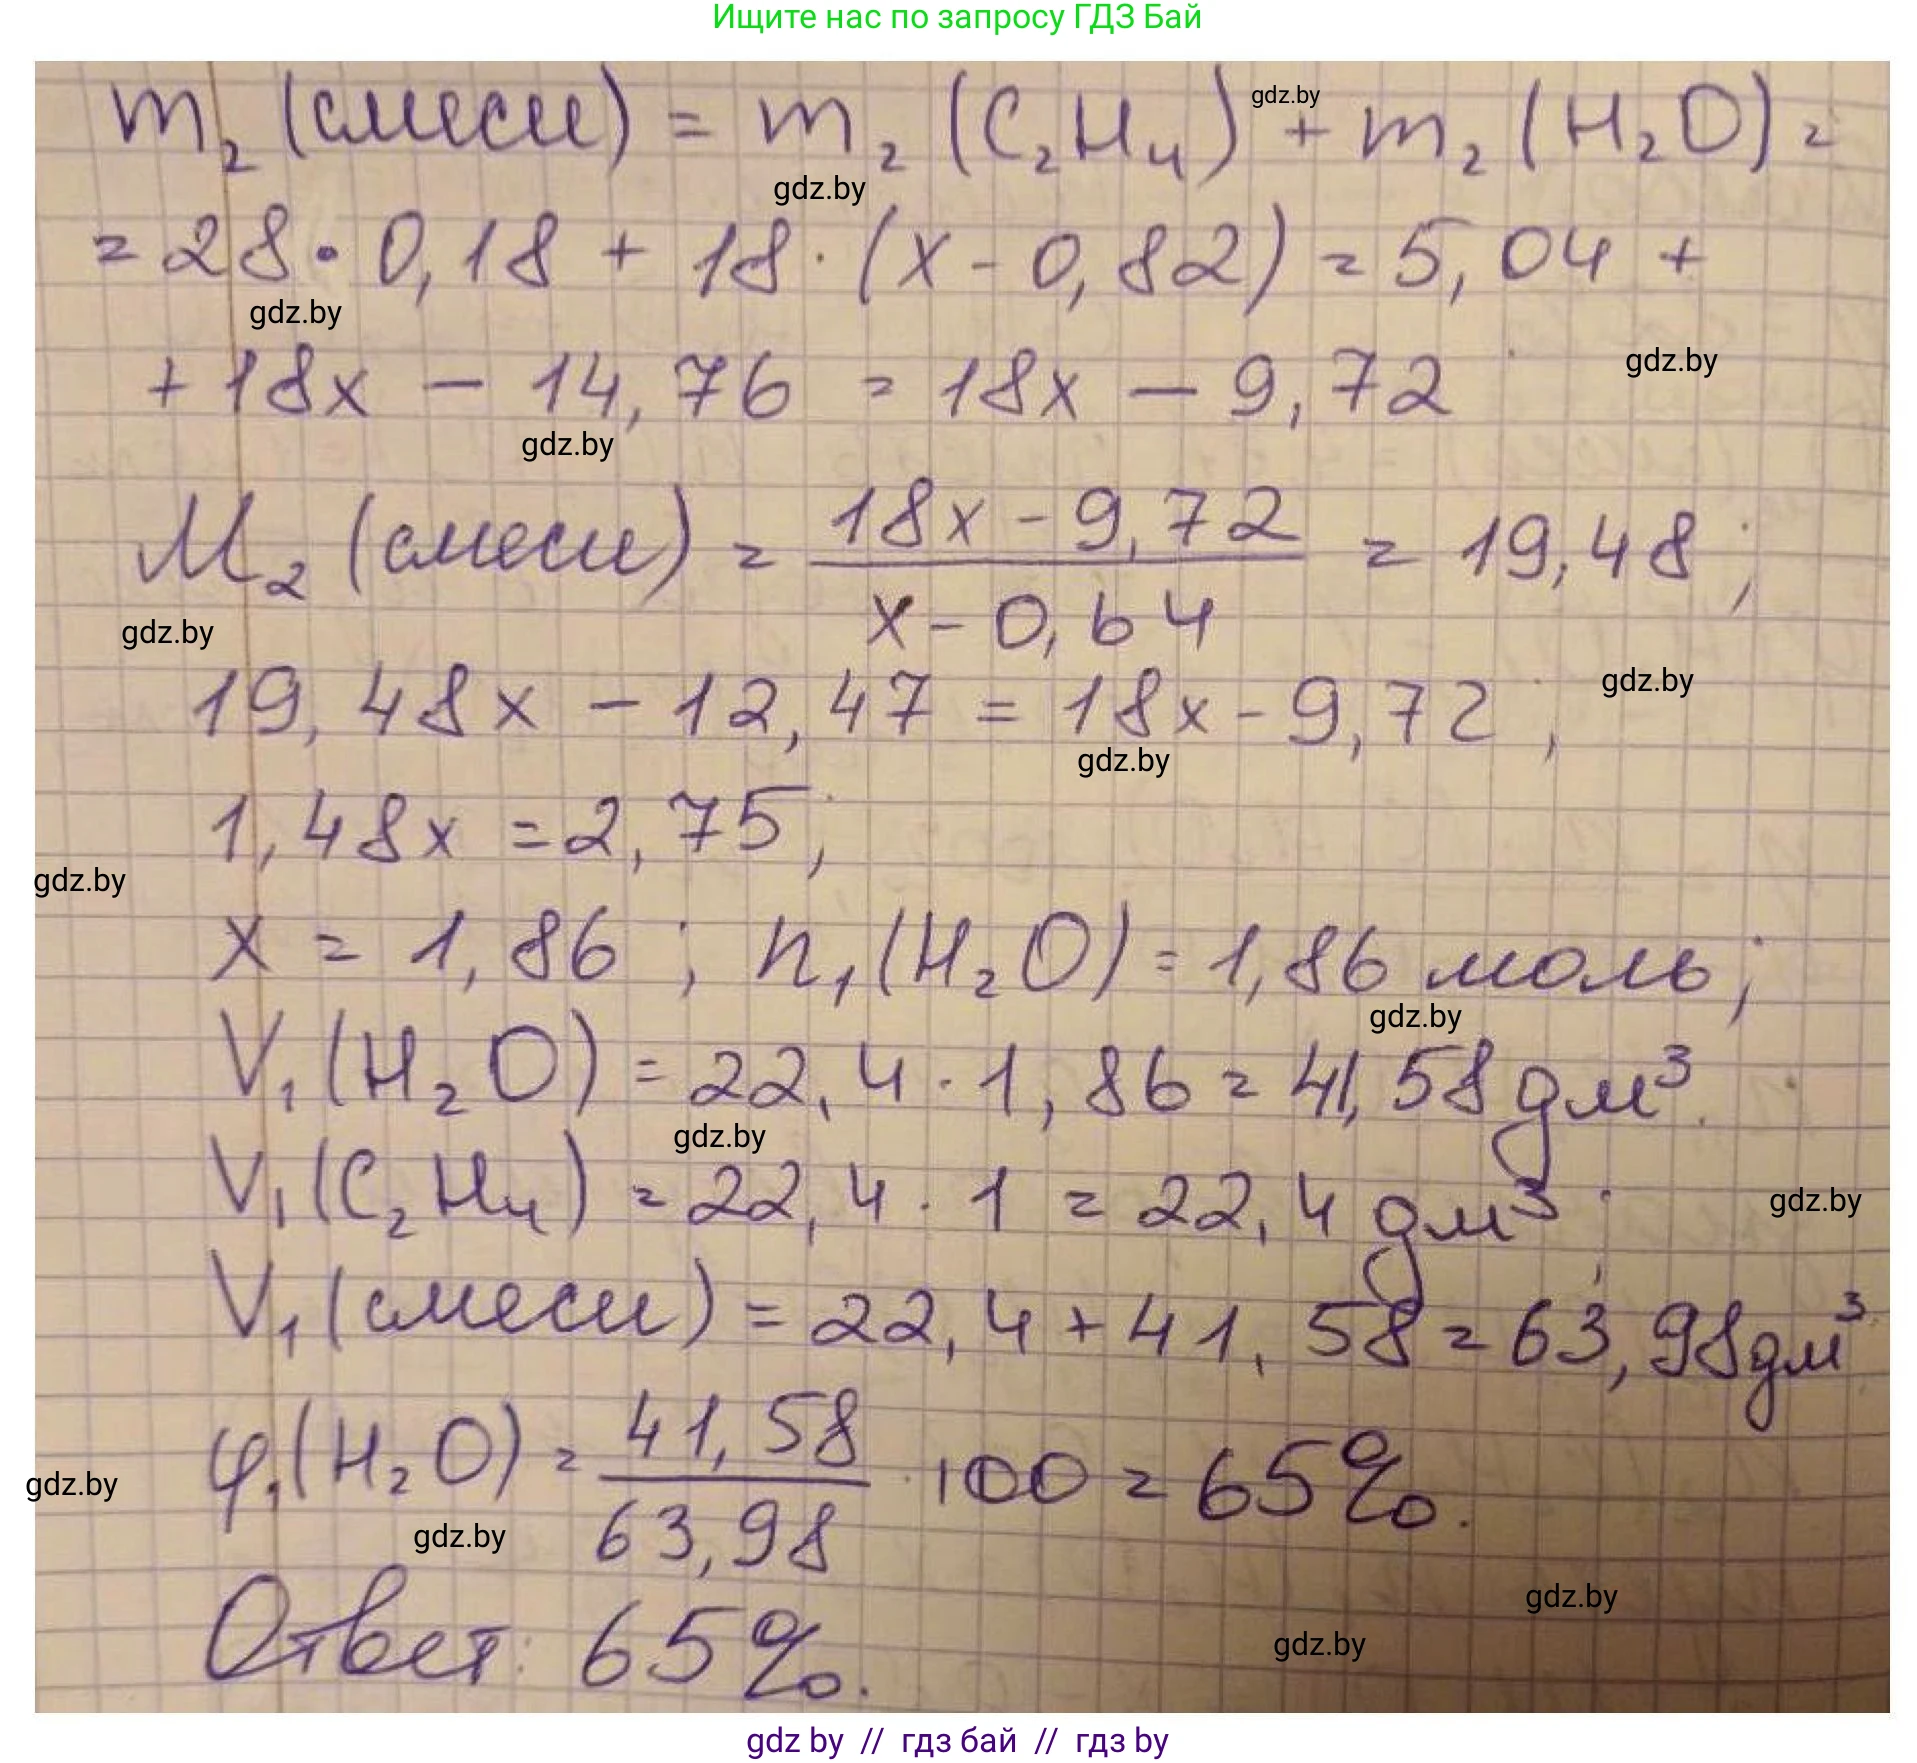 Ищите нас по запросу ГДЗ Бай
m₂ (смеси) = m₂ (C₂H₄) + m₂ (H₂O) =
gdz.by
gdz.by
= 28 · 0,18 + 18 · (x - 0,82) = 5,04 +
gdz.by
+ 18x - 14,76 = 18x - 9,72
gdz.by
gdz.by
M₂ (смеси) = \frac{18x - 9,72}{x - 0,64} = 19,48;
gdz.by
19,48x - 12,47 = 18x - 9,72;
gdz.by
gdz.by
1,48x = 2,75;
gdz.by
x = 1,86; n₁ (H₂O) = 1,86 моль;
gdz.by
V₁ (H₂O) = 22,4 · 1,86 = 41,58 дм³.
gdz.by
V₁ (C₂H₄) = 22,4 · 1 = 22,4 дм³;
gdz.by
V₁ (смеси) = 22,4 + 41,58 = 63,98 дм³.
φ₁ (H₂O) = \frac{41,58}{63,98} · 100 = 65%.
gdz.by
gdz.by
Ответ: 65%.
gdz.by
gdz.by
gdz by // гдз бай // гдз by